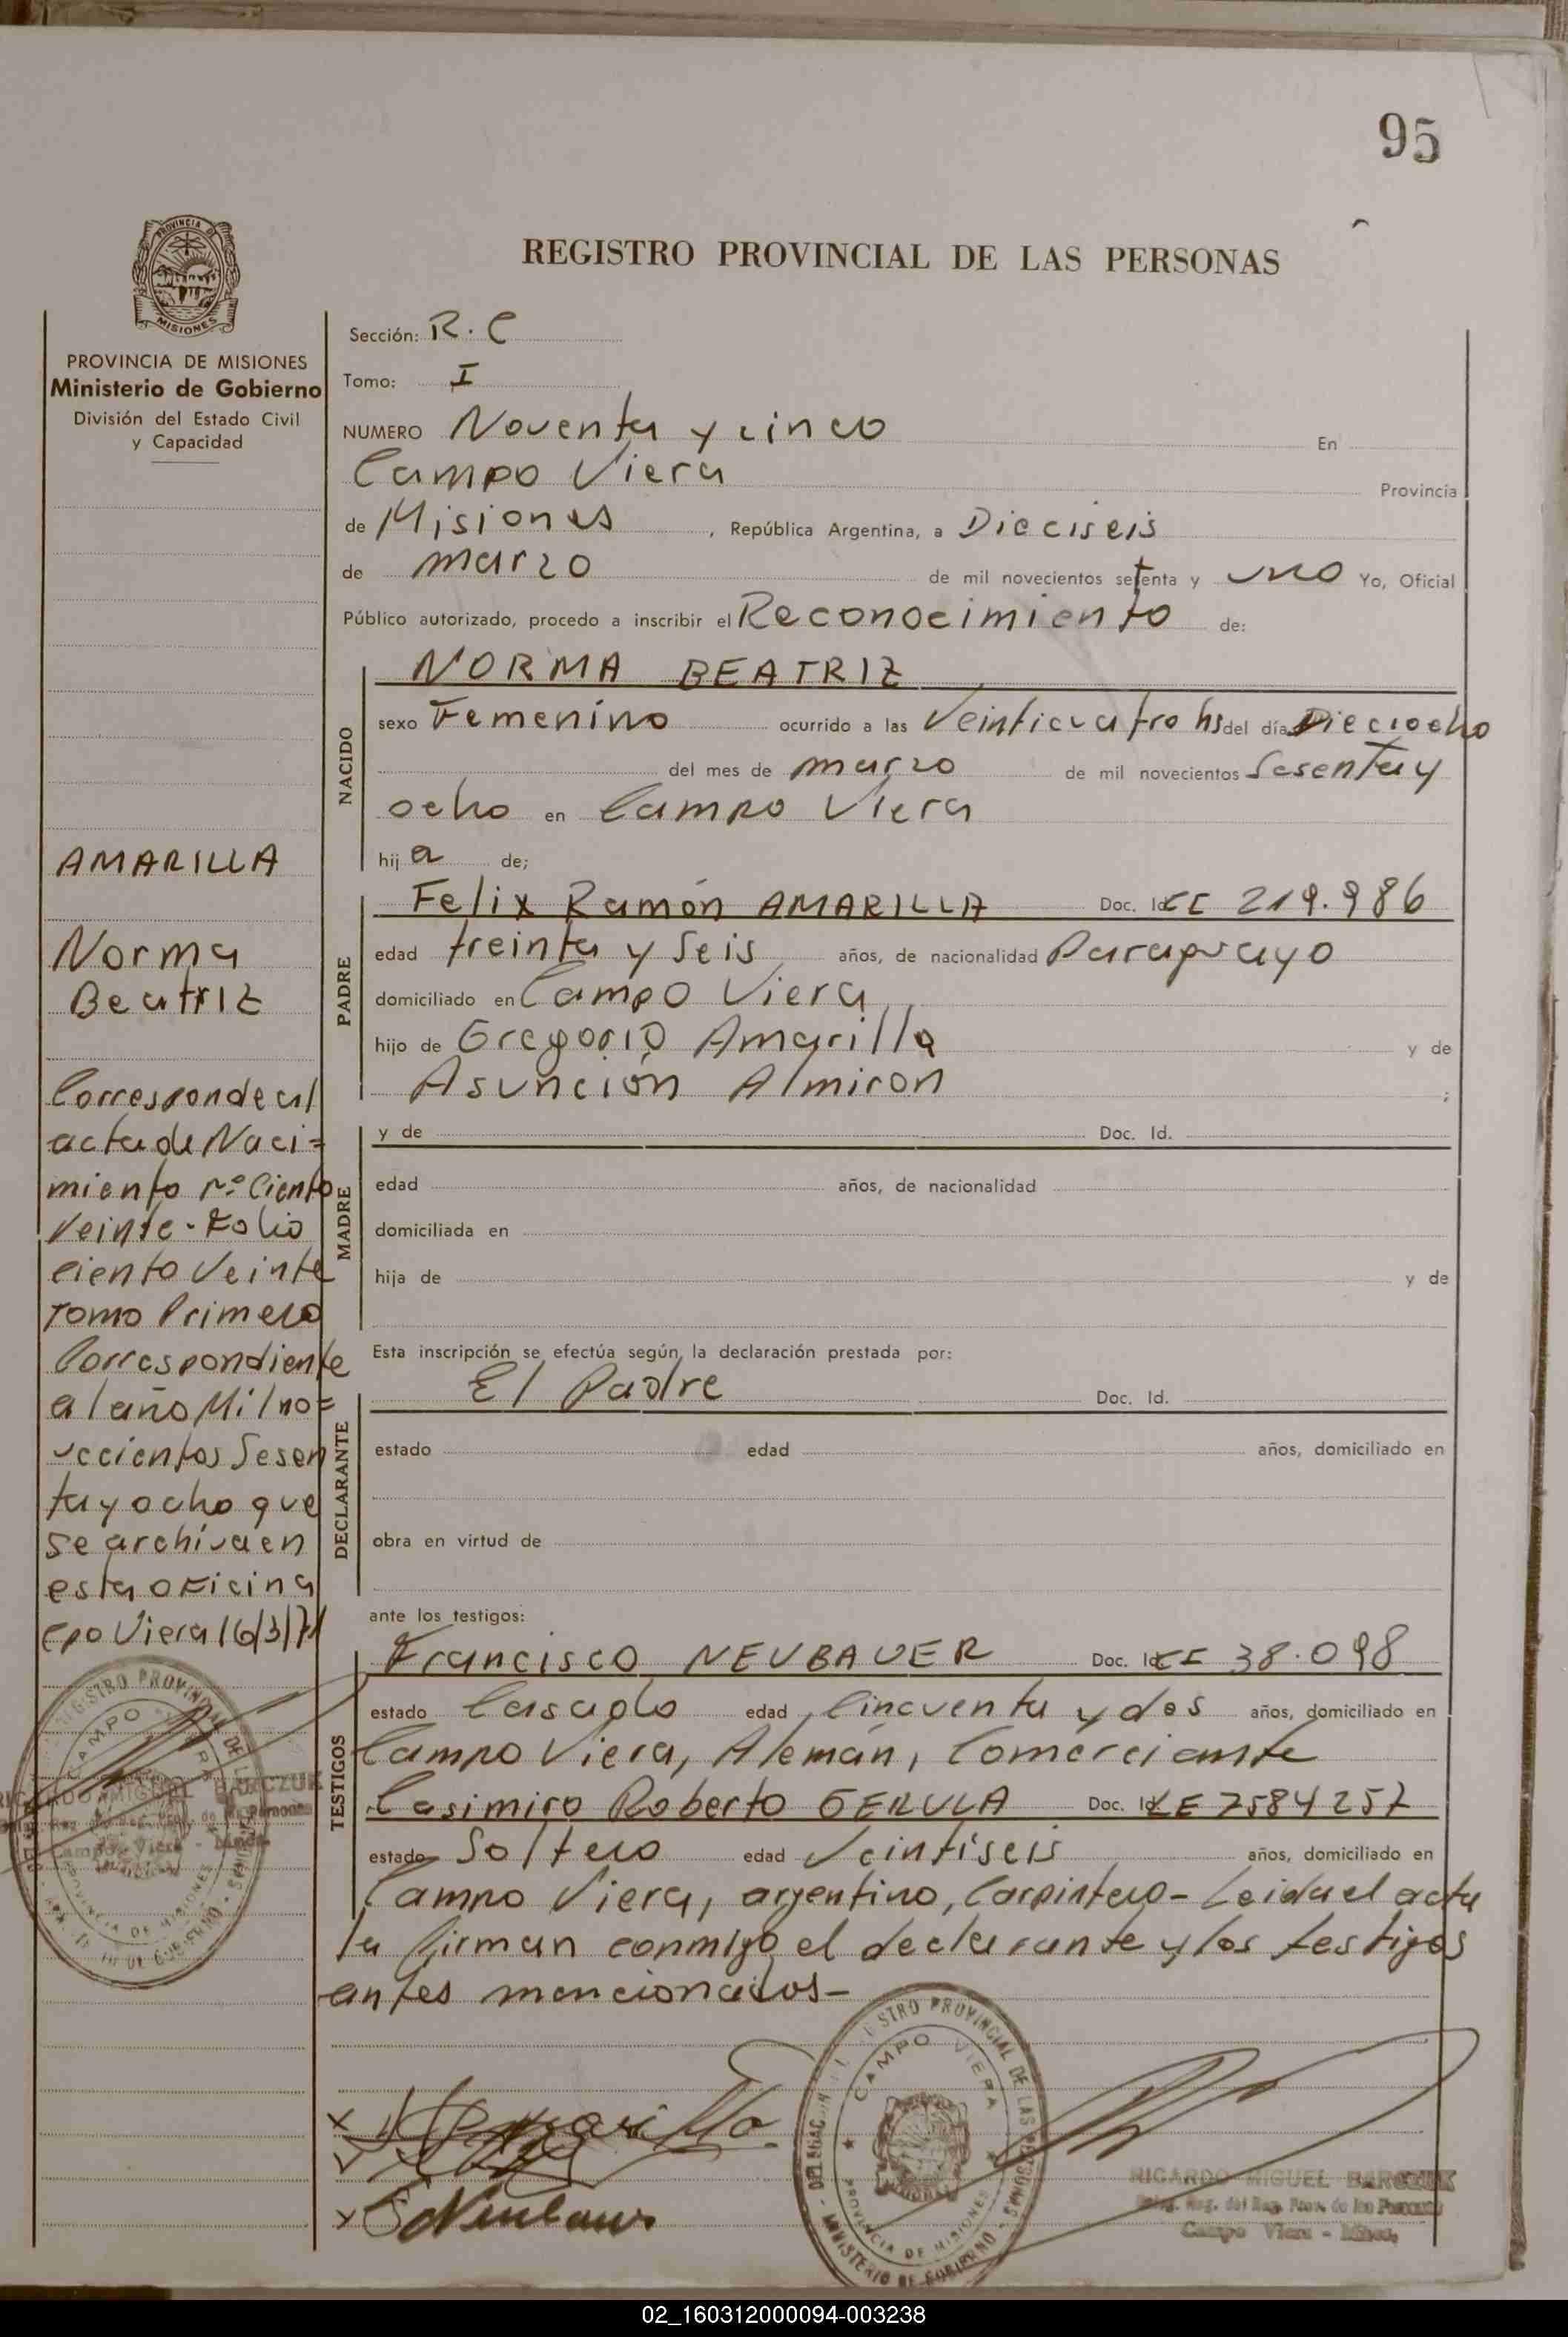 95
PROVINCIA DE
MISIONES
PROVINCIA DE MISIONES
Ministerio de Gobierno
División del Estado Civil
y Capacidad
AMARILLA
Norma
Beatriz
Corresponde al
acta de Naci=
miento nº Ciento
Veinte - Folio
ciento Veinte
Tomo Primero
Correspondiente
al año Mil no=
vecientos Sesen
ta y ocho que
se archiva en
esta oficina
cpo Viera 16/3/71
REGISTRO PROVINCIAL DE LAS PERSONAS
Sección: R. C
Tomo: I
NUMERO Noventa y cinco En
Campo Viera Provincia
de Misiones , República Argentina, a Dieciseis
de marzo de mil novecientos setenta y uno Yo, Oficial
Público autorizado, procedo a inscribir el Reconocimiento de:
NACIDO
NORMA BEATRIZ
sexo Femenino ocurrido a las Veinticuatro hs del día Dieciocho
del mes de marzo de mil novecientos Sesenta y
ocho en Campo Viera
hij a de;
PADRE
Felix Ramón AMARILLA Doc. Id. 219.986
edad treinta y Seis años, de nacionalidad Paraguayo
domiciliado en Campo Viera
hijo de Gregorio Amarilla y de
Asunción Almiron ;
MADRE
y de Doc. Id.
edad años, de nacionalidad
domiciliada en
hija de y de
Esta inscripción se efectúa según la declaración prestada por:
DECLARANTE
El Padre Doc. Id.
estado edad años, domiciliado en
obra en virtud de
ante los testigos:
TESTIGOS
Francisco NEUBAUER Doc. Id. 38.098
estado Casado edad Cincuenta y dos años, domiciliado en
Campo Viera, Alemán, Comerciante
Casimiro Roberto GERULA Doc. Id. LE 7584257
estado Soltero edad Veintiseis años, domiciliado en
Campo Viera, argentino, Carpintero - Leida el acta
la firman conmigo el declarante y los testigos
antes mencionados -
REGISTRO PROVINCIAL DE LAS PERSONAS
CAMPO VIERA
PROVINCIA DE MISIONES
MINISTERIO DE GOBIERNO
RICARDO MIGUEL BARCZUK
Campo Viera - Mnes.
02_160312000094-003238